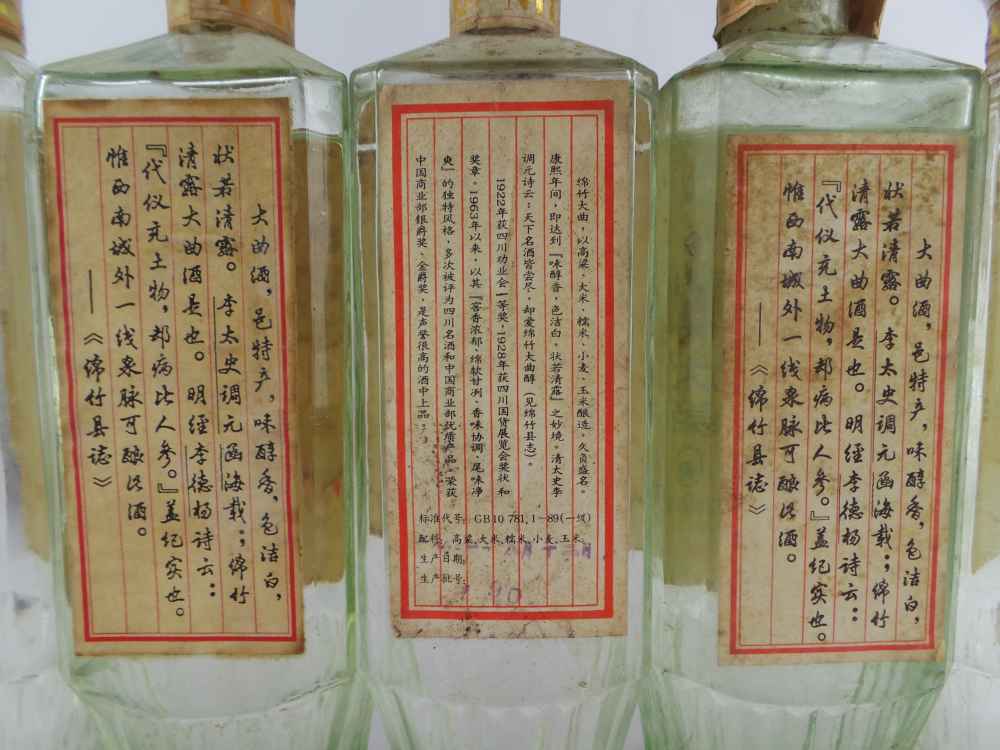 大曲酒,邑特产,味醇香,色洁白,
状若清露。李太史调元函海载:绵竹
清露大曲酒是也。明经李德扬诗云:
『代仪充土物,却病比人参。』盖纪实也。
惟西南城外一线泉脉可酿此酒。
——《绵竹县誌》
绵竹大曲,以高粱、大米、糯米、小麦、玉米酿造,久负盛名。
康熙年间,即达到『味醇香,色洁白,状若清露』之妙境。清太史李
调元诗云:天下名酒皆尝尽,却爱绵竹大曲醇(见绵竹县志)。
1922年获四川劝业会一等奖,1928年获四川国货展览会奖状和
奖章。1963年以来,以其『窖香浓郁、绵软甘冽、香味协调、尾味净
爽』的独特风格,多次被评为四川名酒和中国商业部优质产品,荣获
中国商业部银爵奖、金爵奖,是声誉很高的酒中上品。
标准代号:GB10 781.1-89(一级)
配料:高粱、大米、糯米、小麦、玉米
生产日期:
生产批号:
大曲酒,邑特产,味醇香,色洁白,
状若清露。李太史调元函海载:绵竹
清露大曲酒是也。明经李德扬诗云:
『代仪充土物,却病比人参。』盖纪实也。
惟西南城外一线泉脉可酿此酒。
——《绵竹县誌》